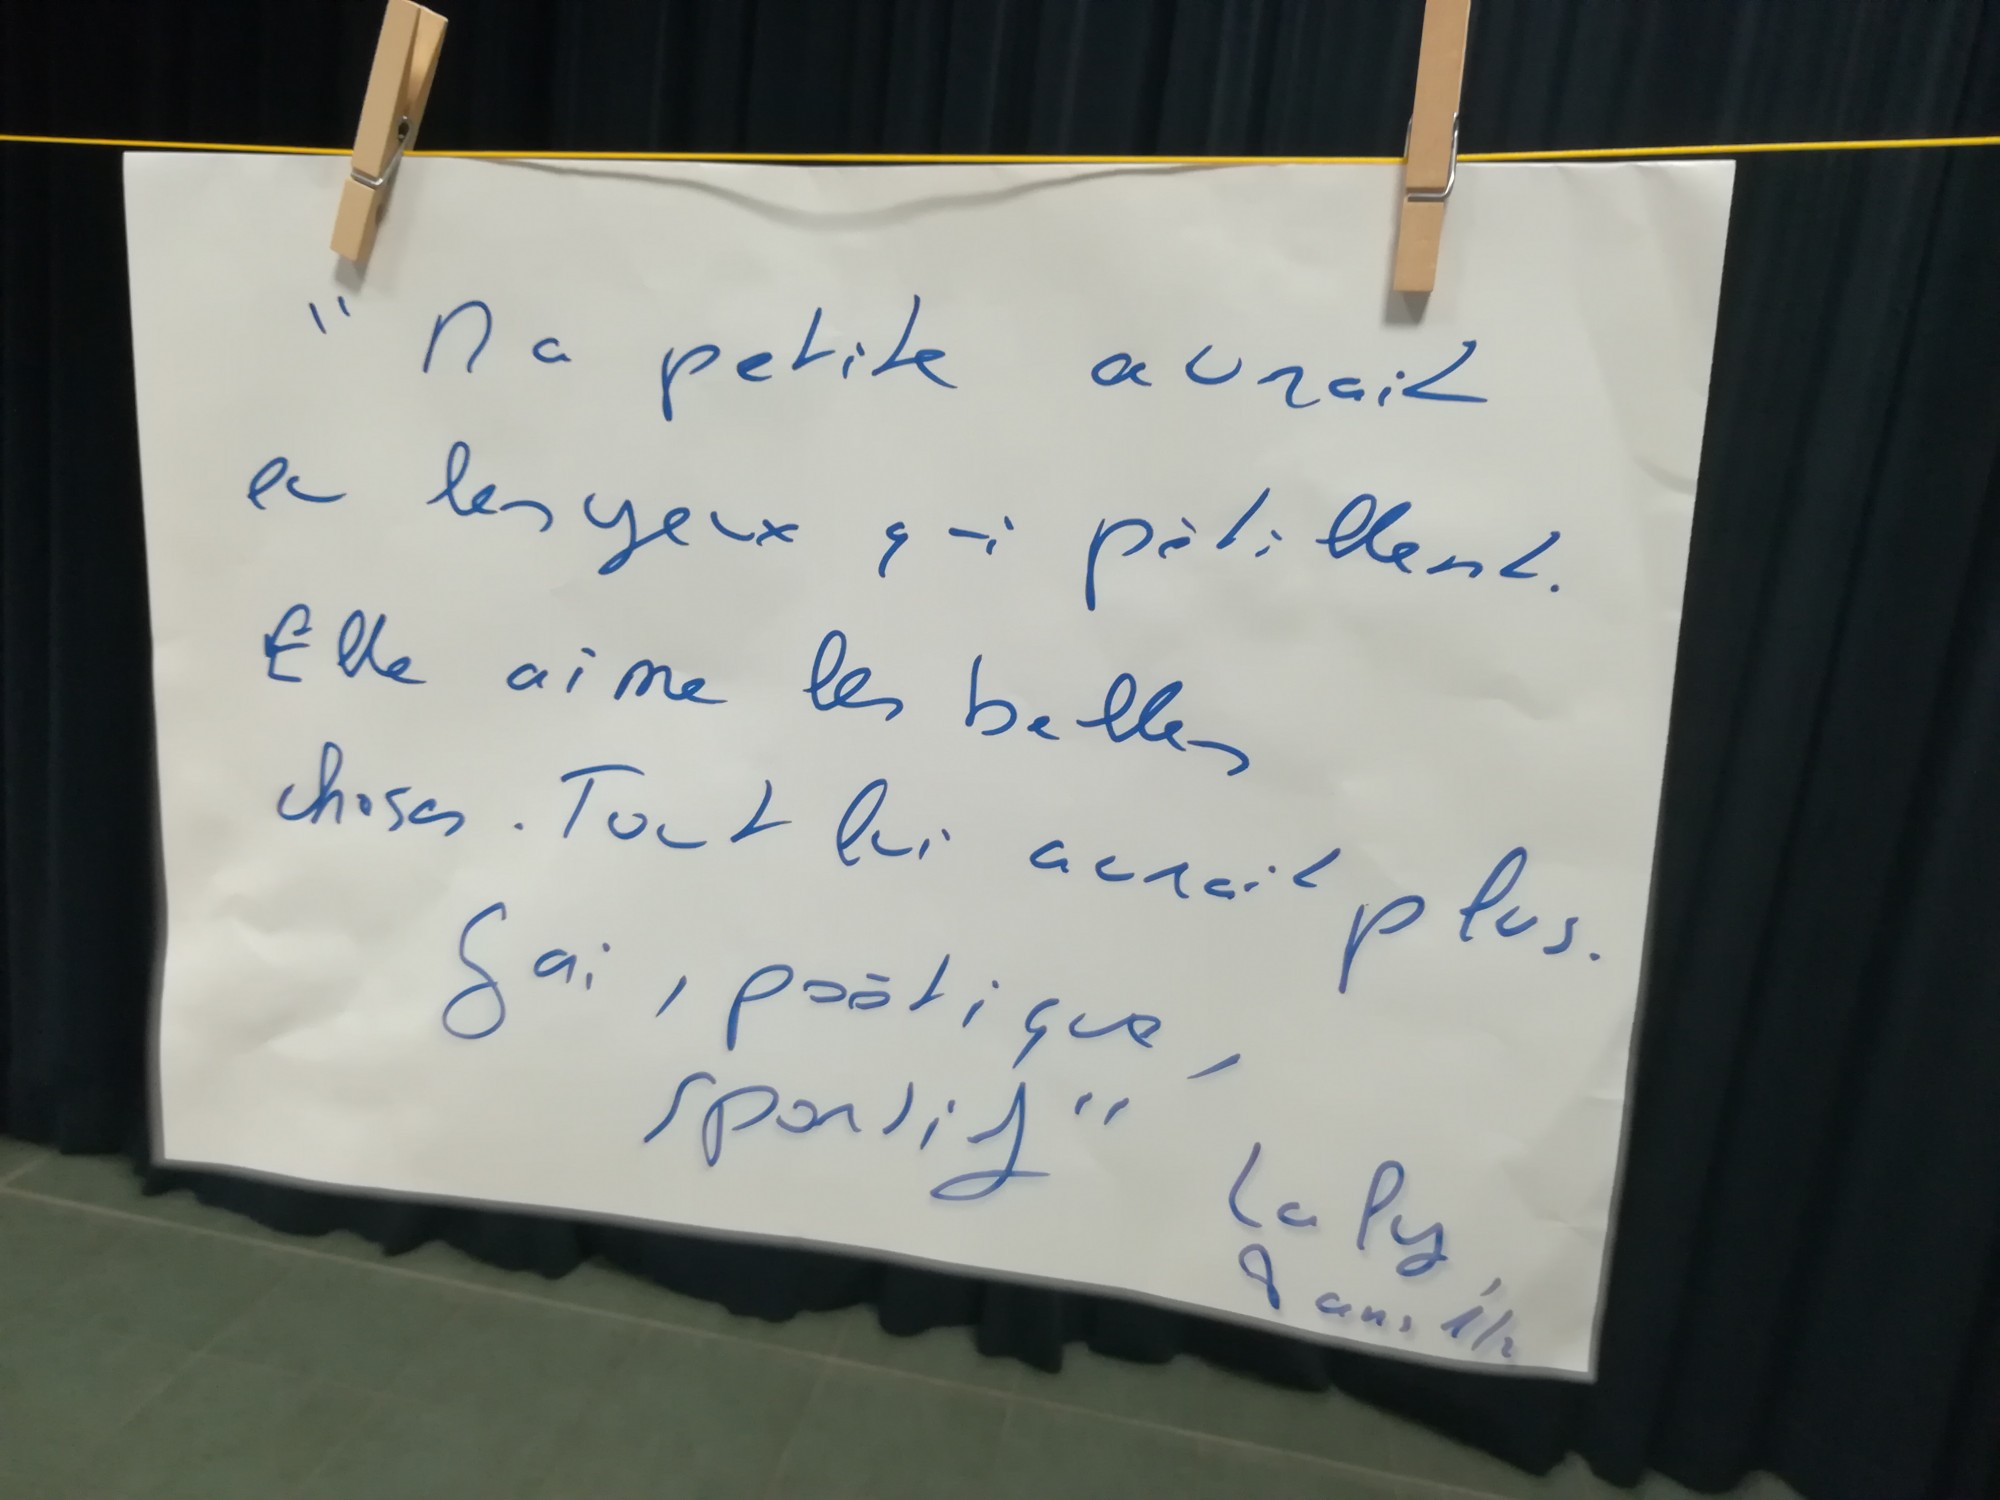 "Ma petite aurait
eu les yeux qui pétillent.
Elle aime les belles
choses. Tout lui aurait plus.
Gai, poétique,
sportif"
La Puy,
8 ans 1/2